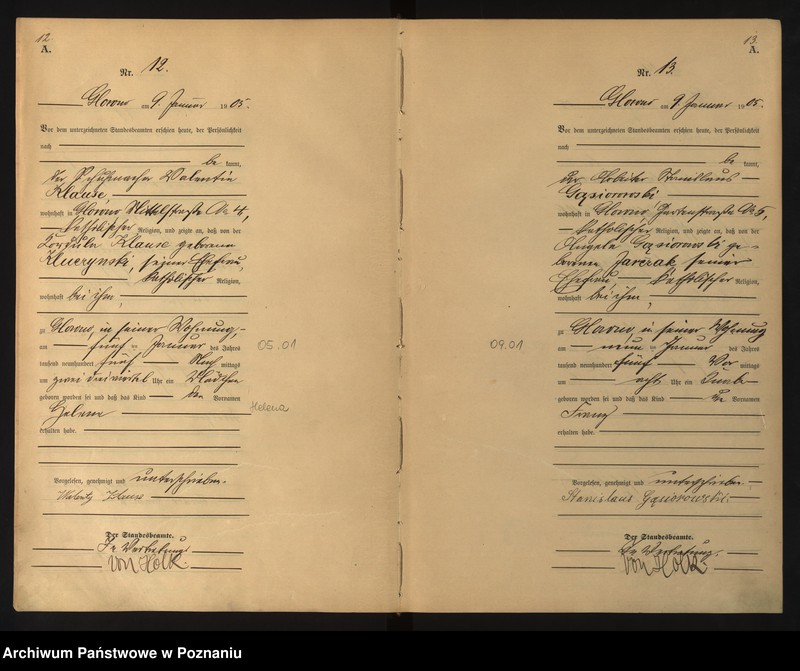 12.
A.
Nr. 12.
Glowno am 9 Januar 1905.
Vor dem unterzeichneten Standesbeamten erschien heute, der Persönlichkeit
nach
be kannt,
der Schuhmacher Valentin
Klause
wohnhaft in Glowno Mittelstraße No 4,
katholischer Religion, und zeigte an, daß von der
Kordula Klause geborenen
Kluczynski, seiner Ehefrau,
katholischer Religion,
wohnhaft bei ihm,
zu Glowno, in seiner Wohnung,
am fünften Januar des Jahres
tausend neunhundert fünf Nach mittags
um zwei dreiviertel Uhr ein Mädchen
geboren worden sei und daß das Kind den Vornamen
Helene
erhalten habe.
05.01
Helena
Vorgelesen, genehmigt und unterschrieben.
Walenty Klause
Der Standesbeamte.
In Vertretung.
von Holk.
13.
A.
Nr. 13.
Glowno am 9 Januar 1905.
Vor dem unterzeichneten Standesbeamten erschien heute, der Persönlichkeit
nach
be kannt,
der Arbeiter Stanislaus
Gąsiorowski
wohnhaft in Glowno, Gartenstraße No 5,
katholischer Religion, und zeigte an, daß von der
Angela Gąsiorowski ge-
borenen Jarczak, seiner
Ehefrau katholischer Religion,
wohnhaft bei ihm,
zu Glowno, in seiner Wohnung
am neunten Januar des Jahres
tausend neunhundert fünf Vor mittags
um acht Uhr ein Knabe
geboren worden sei und daß das Kind den Vornamen
Franz
erhalten habe.
09.01
Vorgelesen, genehmigt und unterschrieben.
Stanislaus Gąsiorowski.
Der Standesbeamte.
In Vertretung.
von Holk.
Archiwum Państwowe w Poznaniu